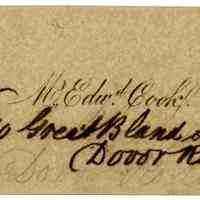 Mr. Edwd. Cooke.
Great Bland
Dover R